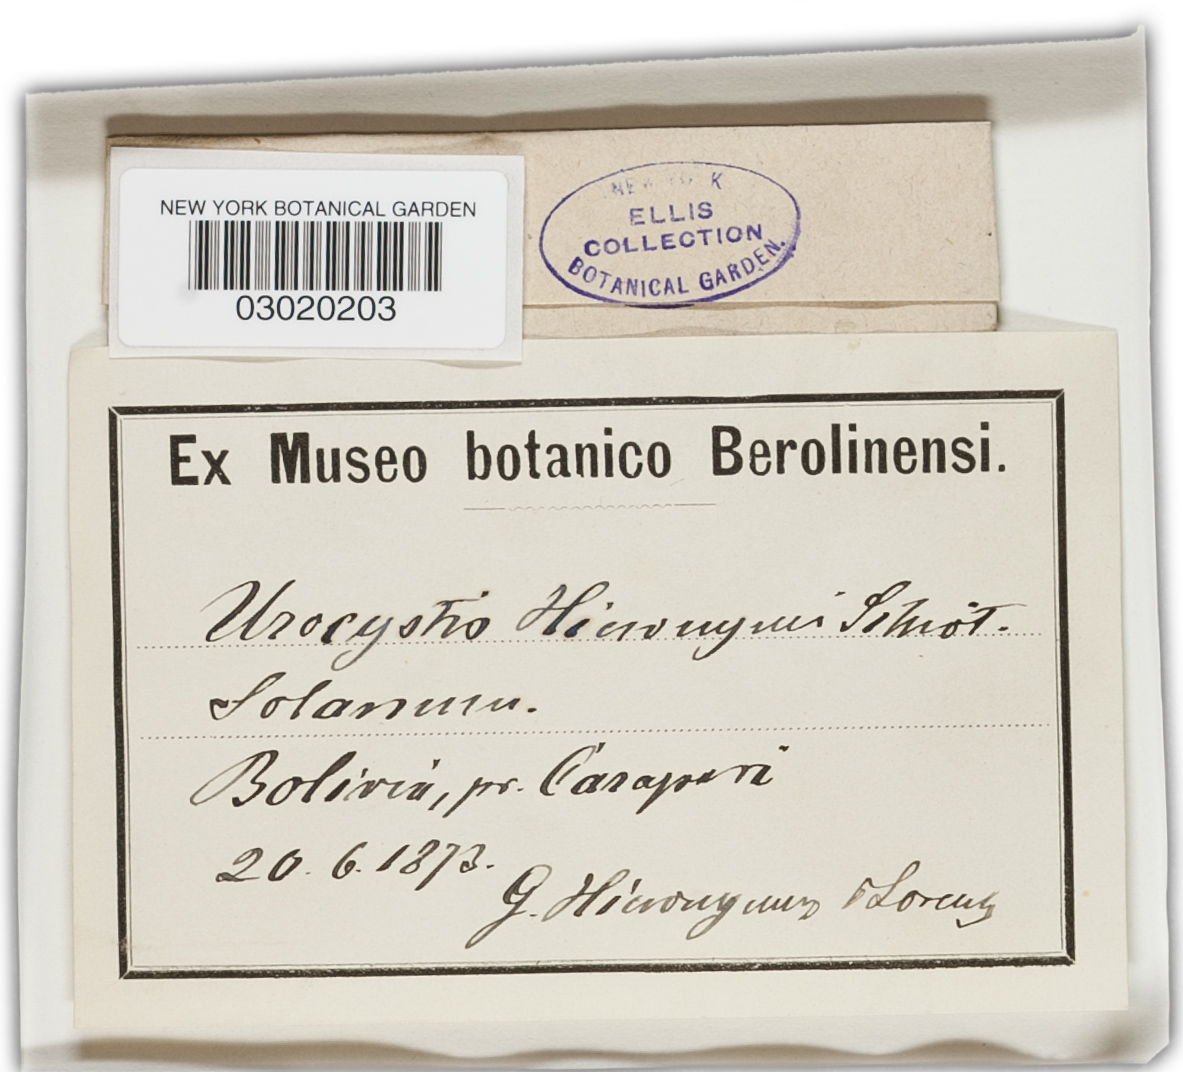 NEW YORK BOTANICAL GARDEN
03020203
NEW YORK
ELLIS
COLLECTION
BOTANICAL GARDEN.
Ex Museo botanico Berolinensi.
Urocystis Hieronymi Schröt.
Solanum.
Bolivia, pr. Caraparí
20. 6. 1873.
G. Hieronymus & Lorentz